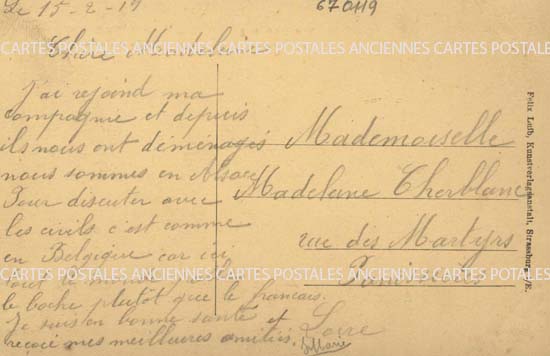 Le 15-2-19
670419
Chère Madeleine
J'ai rejoind ma
compagnie et depuis
ils nous ont déménagés
nous sommes en Alsace
Pour discuter avec
les civils c'est comme
en Belgique car ici
tout le monde
le boche plutôt que le français.
Je suis en bonne santé et
reçoie mes meilleures amitiés.
Mademoiselle
Madelane Cherblanc
rue des Martyrs
Loire
CARTES POSTALES ANCIENNES CARTES POSTALES ANCIENNES CARTES POSTALES
Felix Luib, Kunstverlagsanstalt, Strassburg i/E.